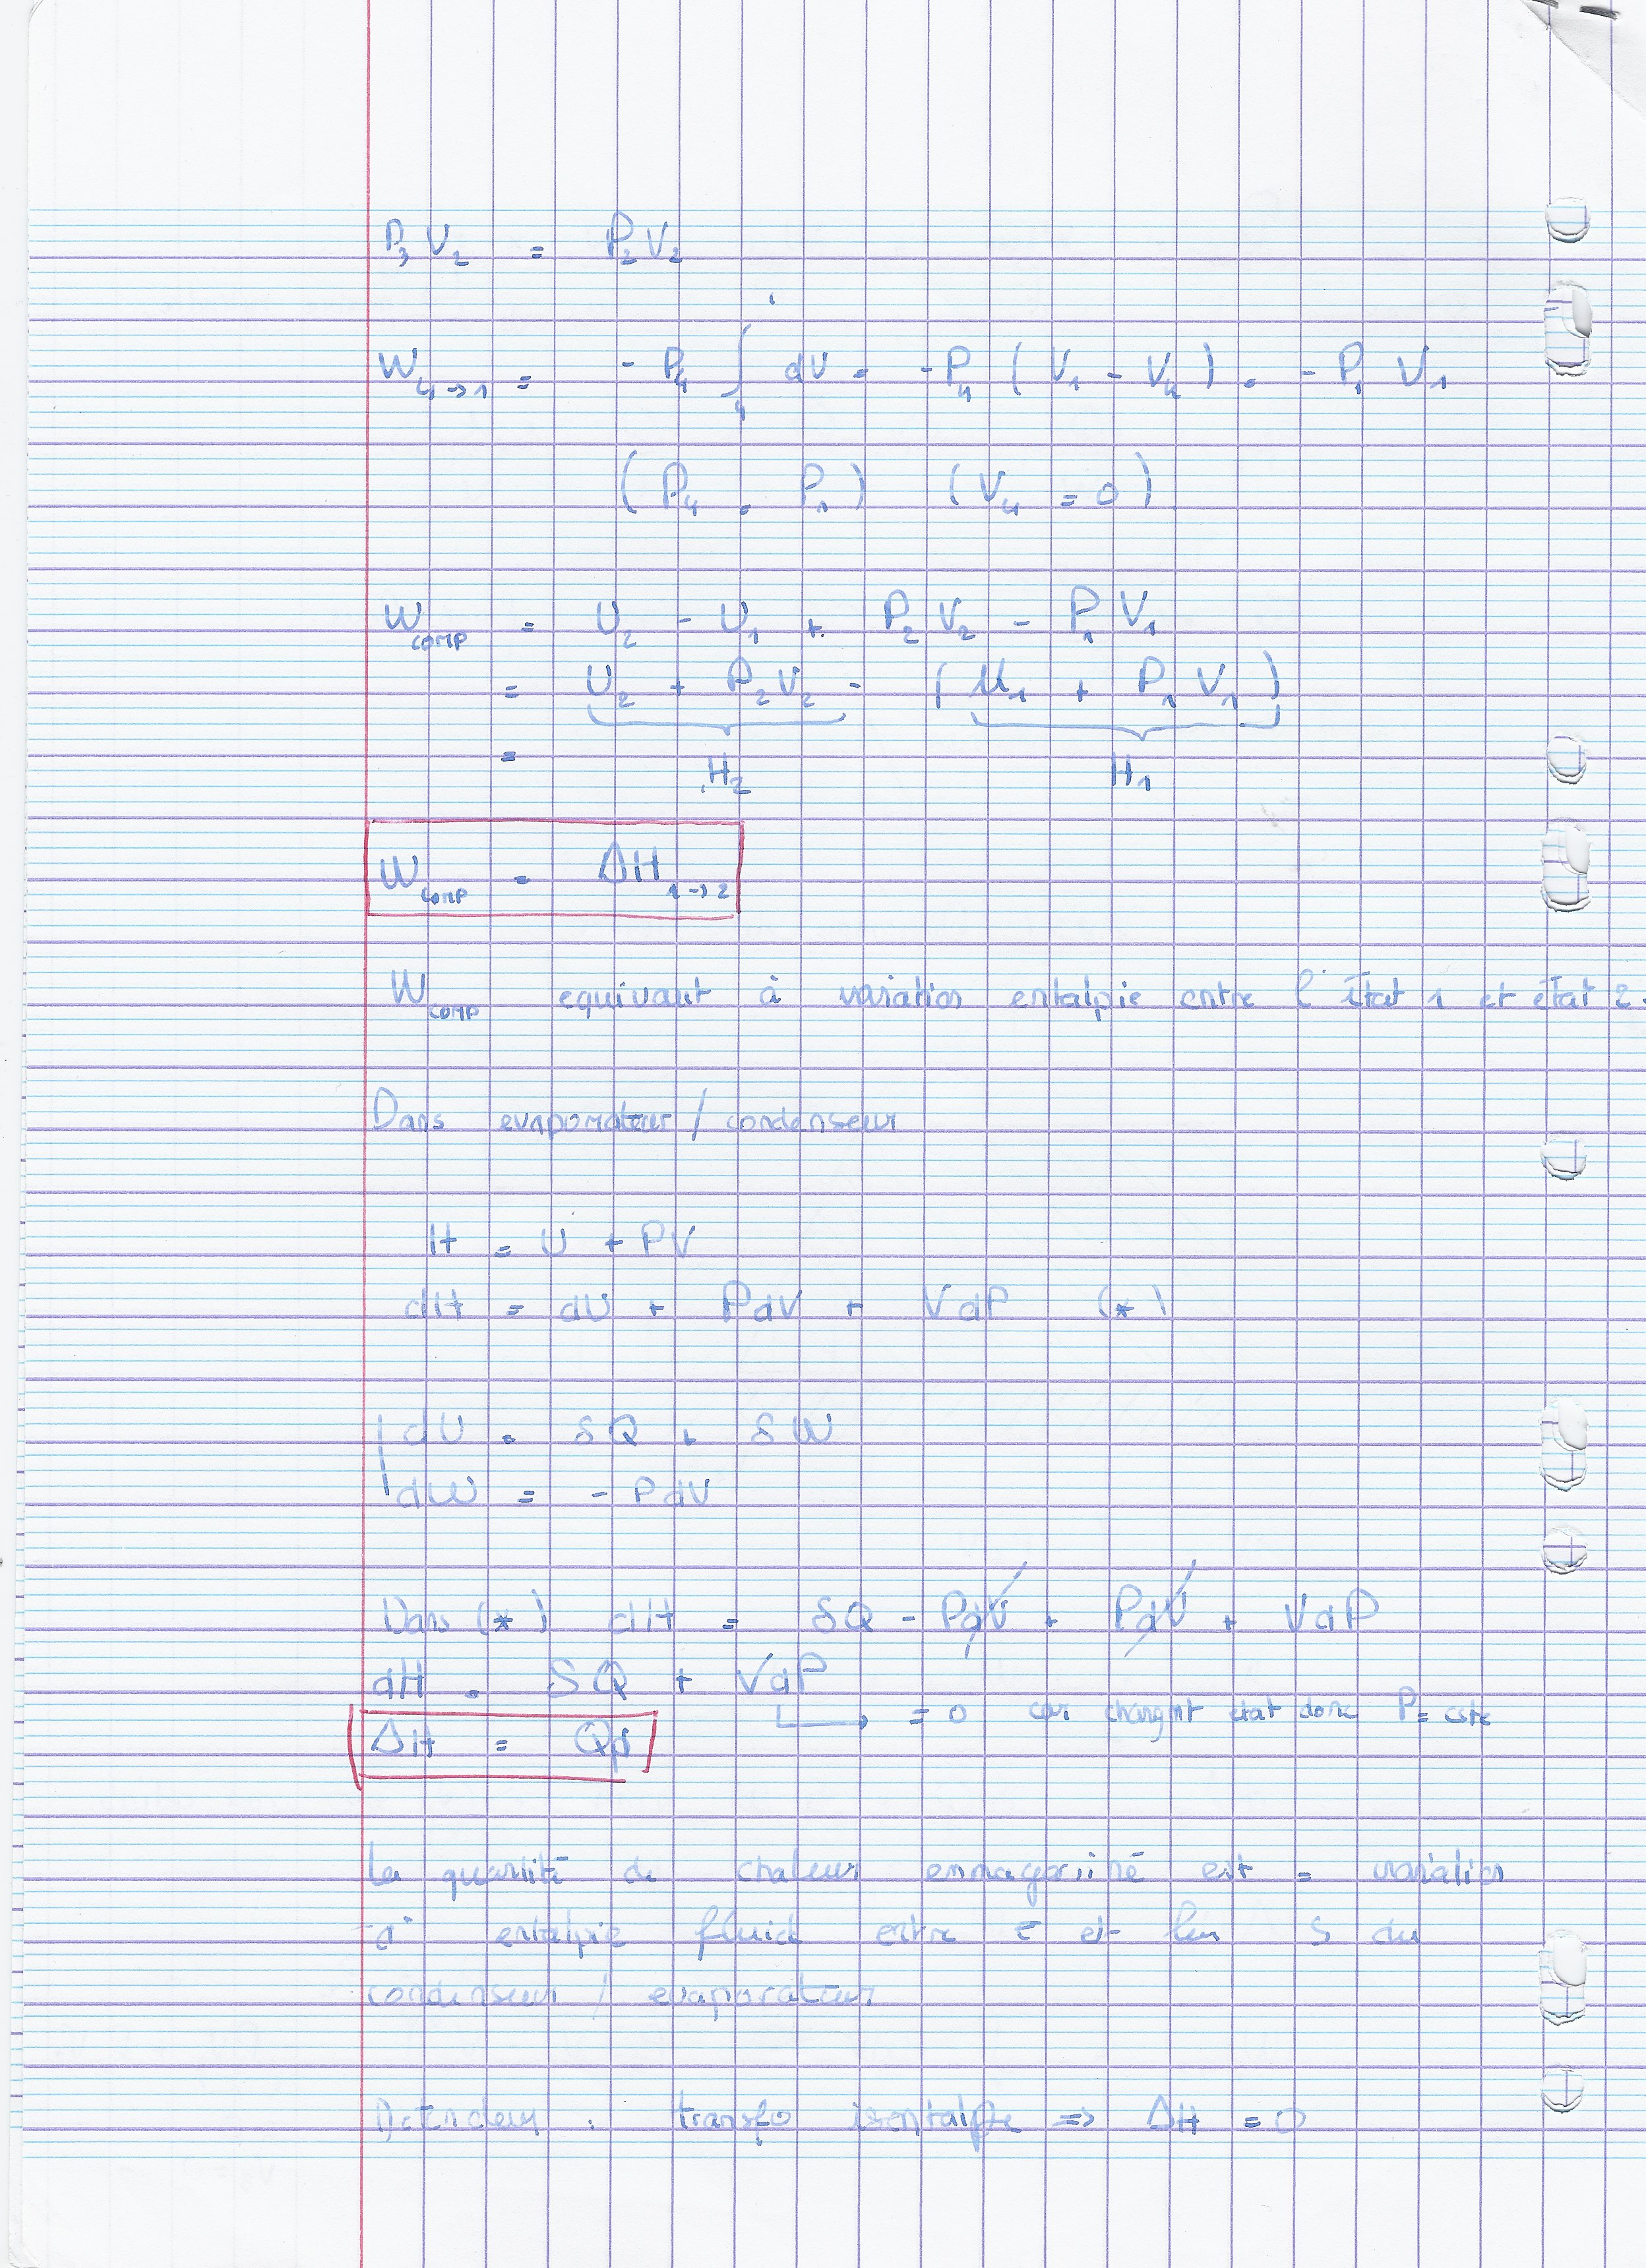 P₃ V₂ = P₂ V₂
W₄→₁ = - P₄ ∫₄ dV = - P₄ ( V₁ - V₄ ) = - P₁ V₁
( P₄ = P₁ ) ( V₄ = 0 )
W comp = U₂ - U₁ + P₂ V₂ - P₁ V₁
= U₂ + P₂ V₂ - ( U₁ + P₁ V₁ )
= H₂ H₁
W comp = ΔH ₁→₂
W comp equivaut à variation entalpie entre l'état 1 et état 2.
Dans evaporateur / condenseur
H = U + PV
dH = dU + PdV + VdP (*)
dU = δQ + δW
dW = - PdV
Dans (*) dH = δQ - PdV + PdV + VdP
dH = δQ + VdP
= 0 car changnt état donc P = cste
ΔH = Qp
La quantité de chaleur emmagasiné est = variation
d' entalpie fluid entre E et S du
condenseur / evaporateur
Detendeur : transfo isentalpe => ΔH = 0